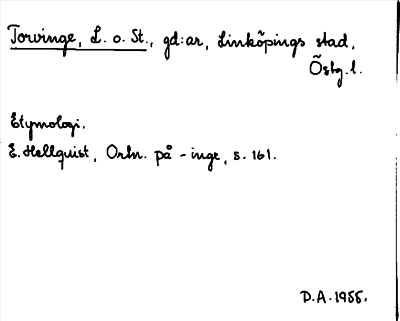 Torvinge, L. o. St., gd:ar, Linköpings stad,
Östg.l.
Etymologi.
E. Hellquist, Ortn. på -inge, s. 161.
D.A. 1955.